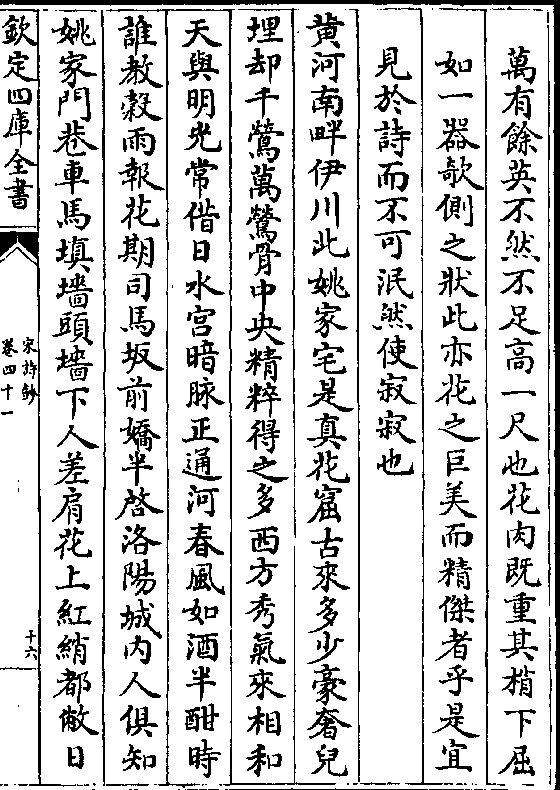 萬有餘英不然不足高一尺也花肉既重其梢下屈
如一器欹側之狀此亦花之巨美而精傑者乎是宜
見於詩而不可泯然使寂寂也
黄河南畔伊川北姚家宅是真花窟古來多少豪奢兒
埋却千鶯萬鶯骨中央精粹得之多西方秀氣來相和
天與明光常借日水宮暗脉正通河春風如酒半酣時
誰教榖雨報花期司馬坂前嬌半啓洛陽城内人俱知
姚家門巷車馬填墻頭墻下人差肩花上紅綃都敝日
欽定四庫全書
宋詩鈔
卷四十一
十六